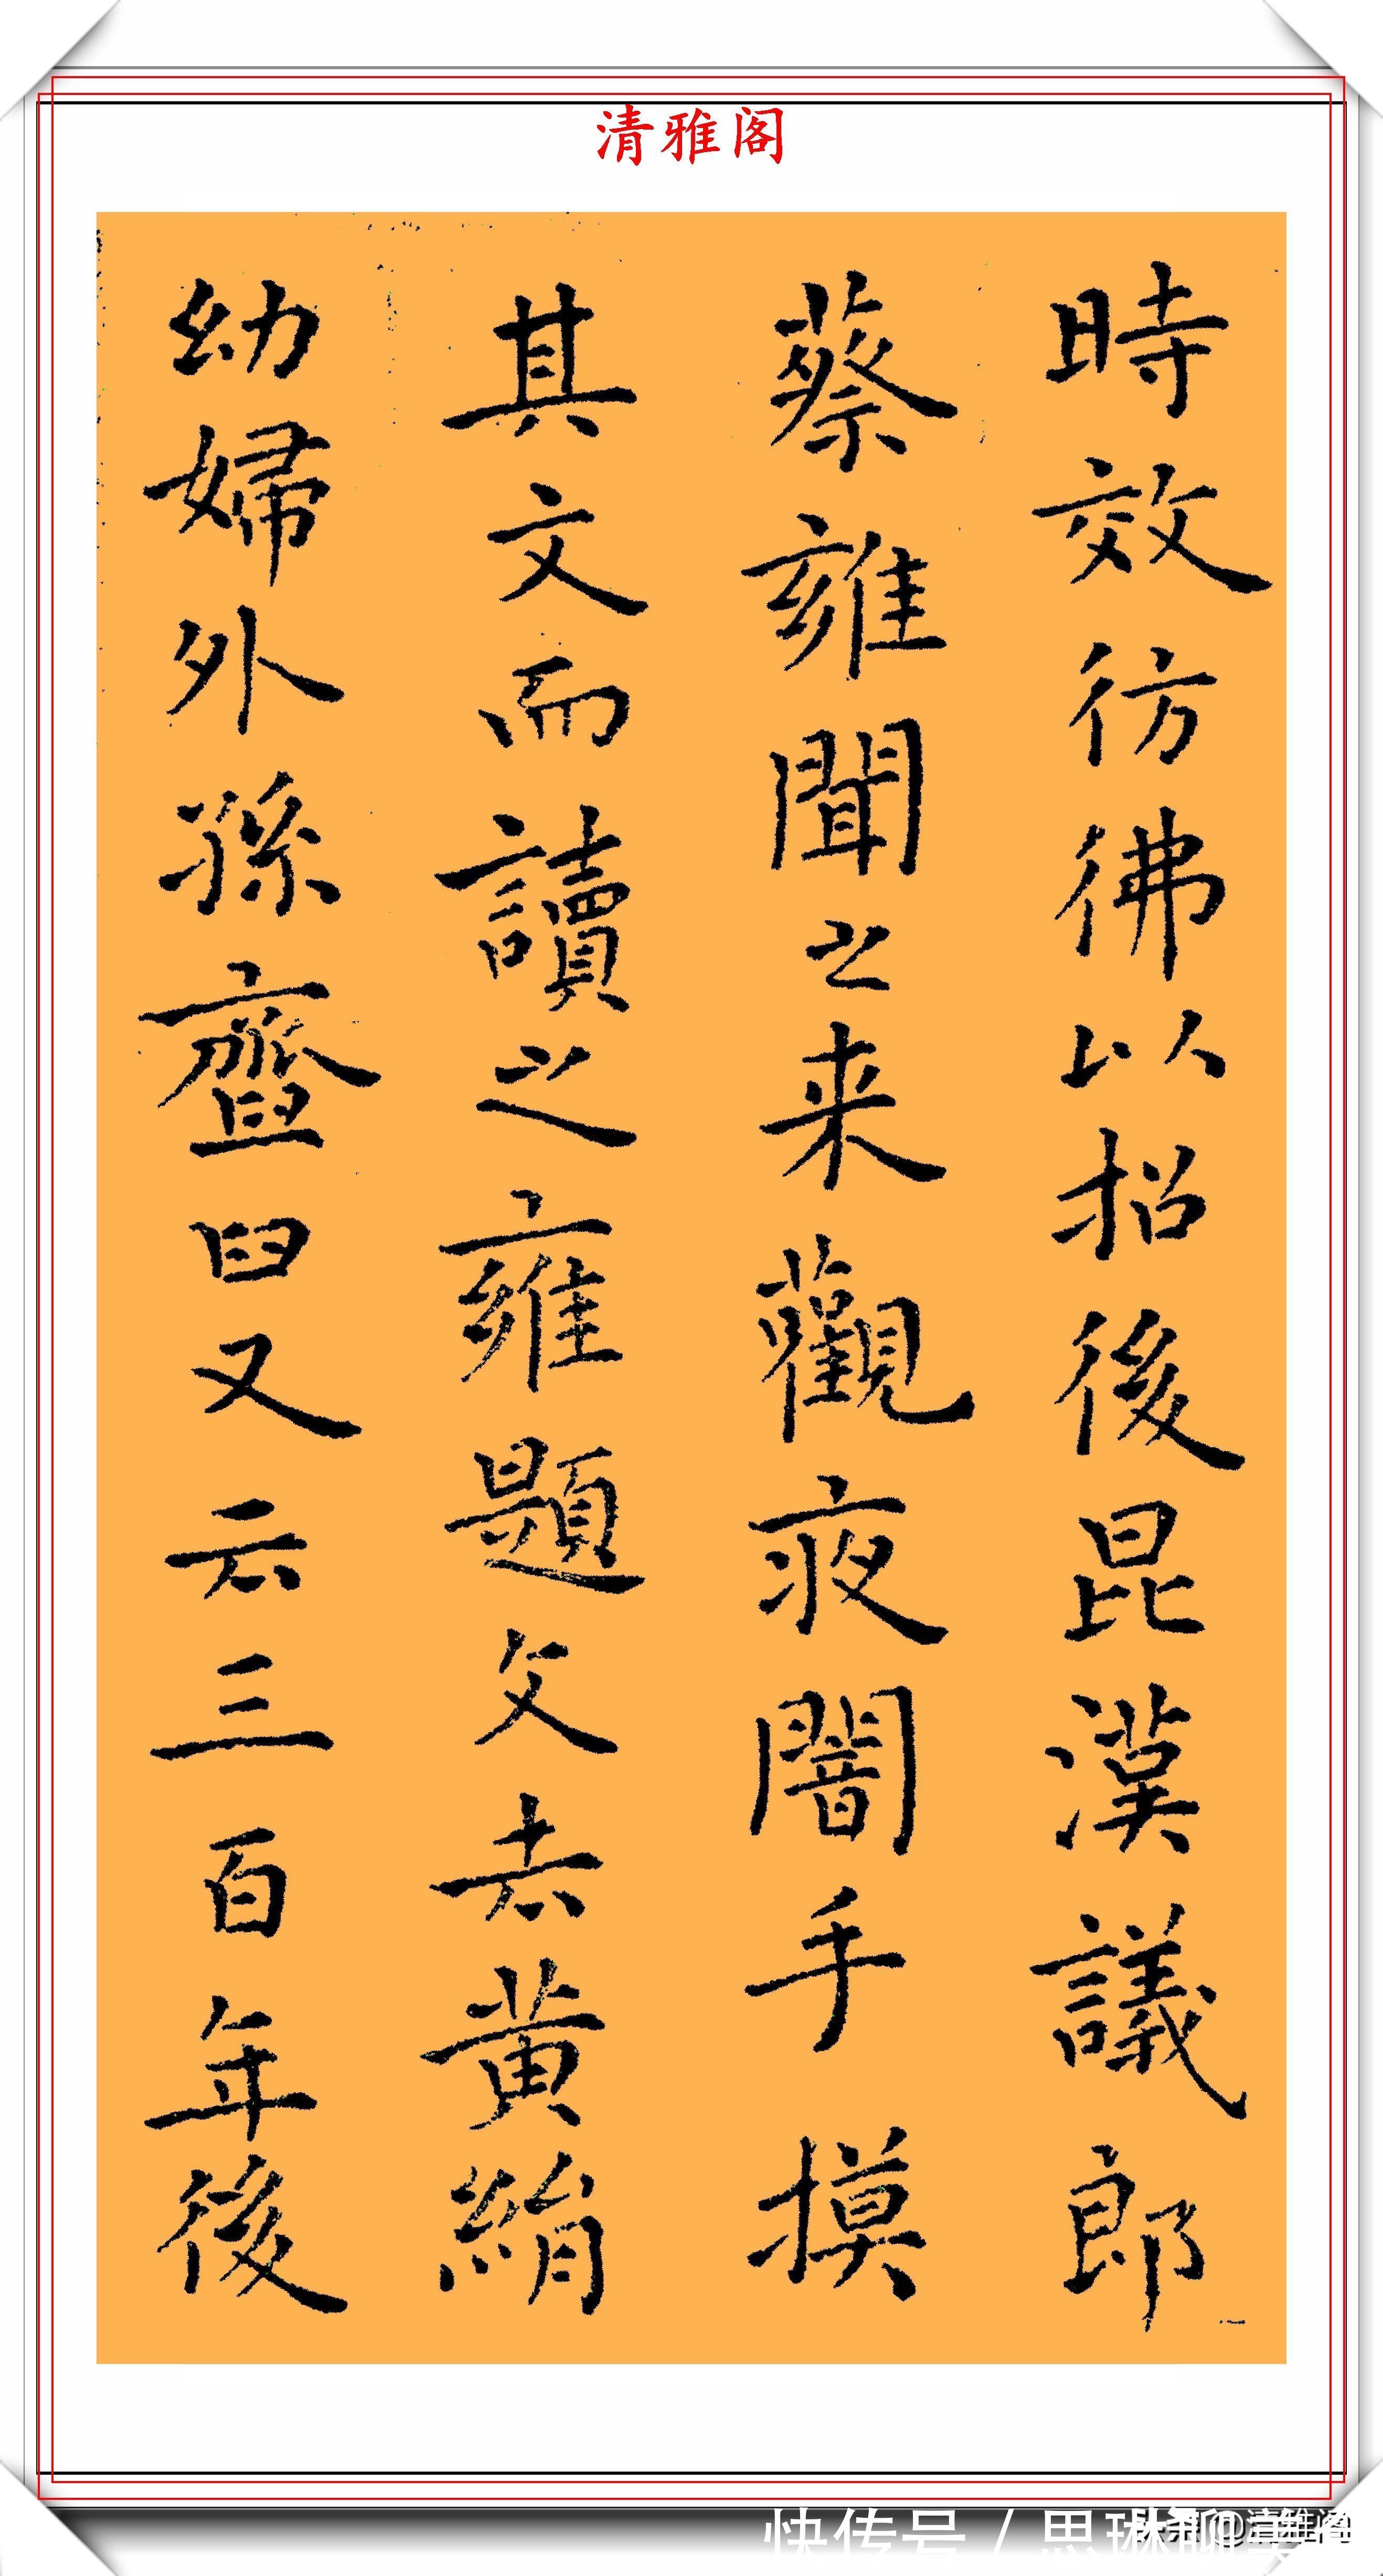 清雅阁
時效彷彿以招後昆漢議郎
蔡雍聞之来觀夜闇手摸
其文而讀之雍題文去黄絹
幼婦外孫齑臼又云三百年後
快传号/思琳聊美
@清雅阁